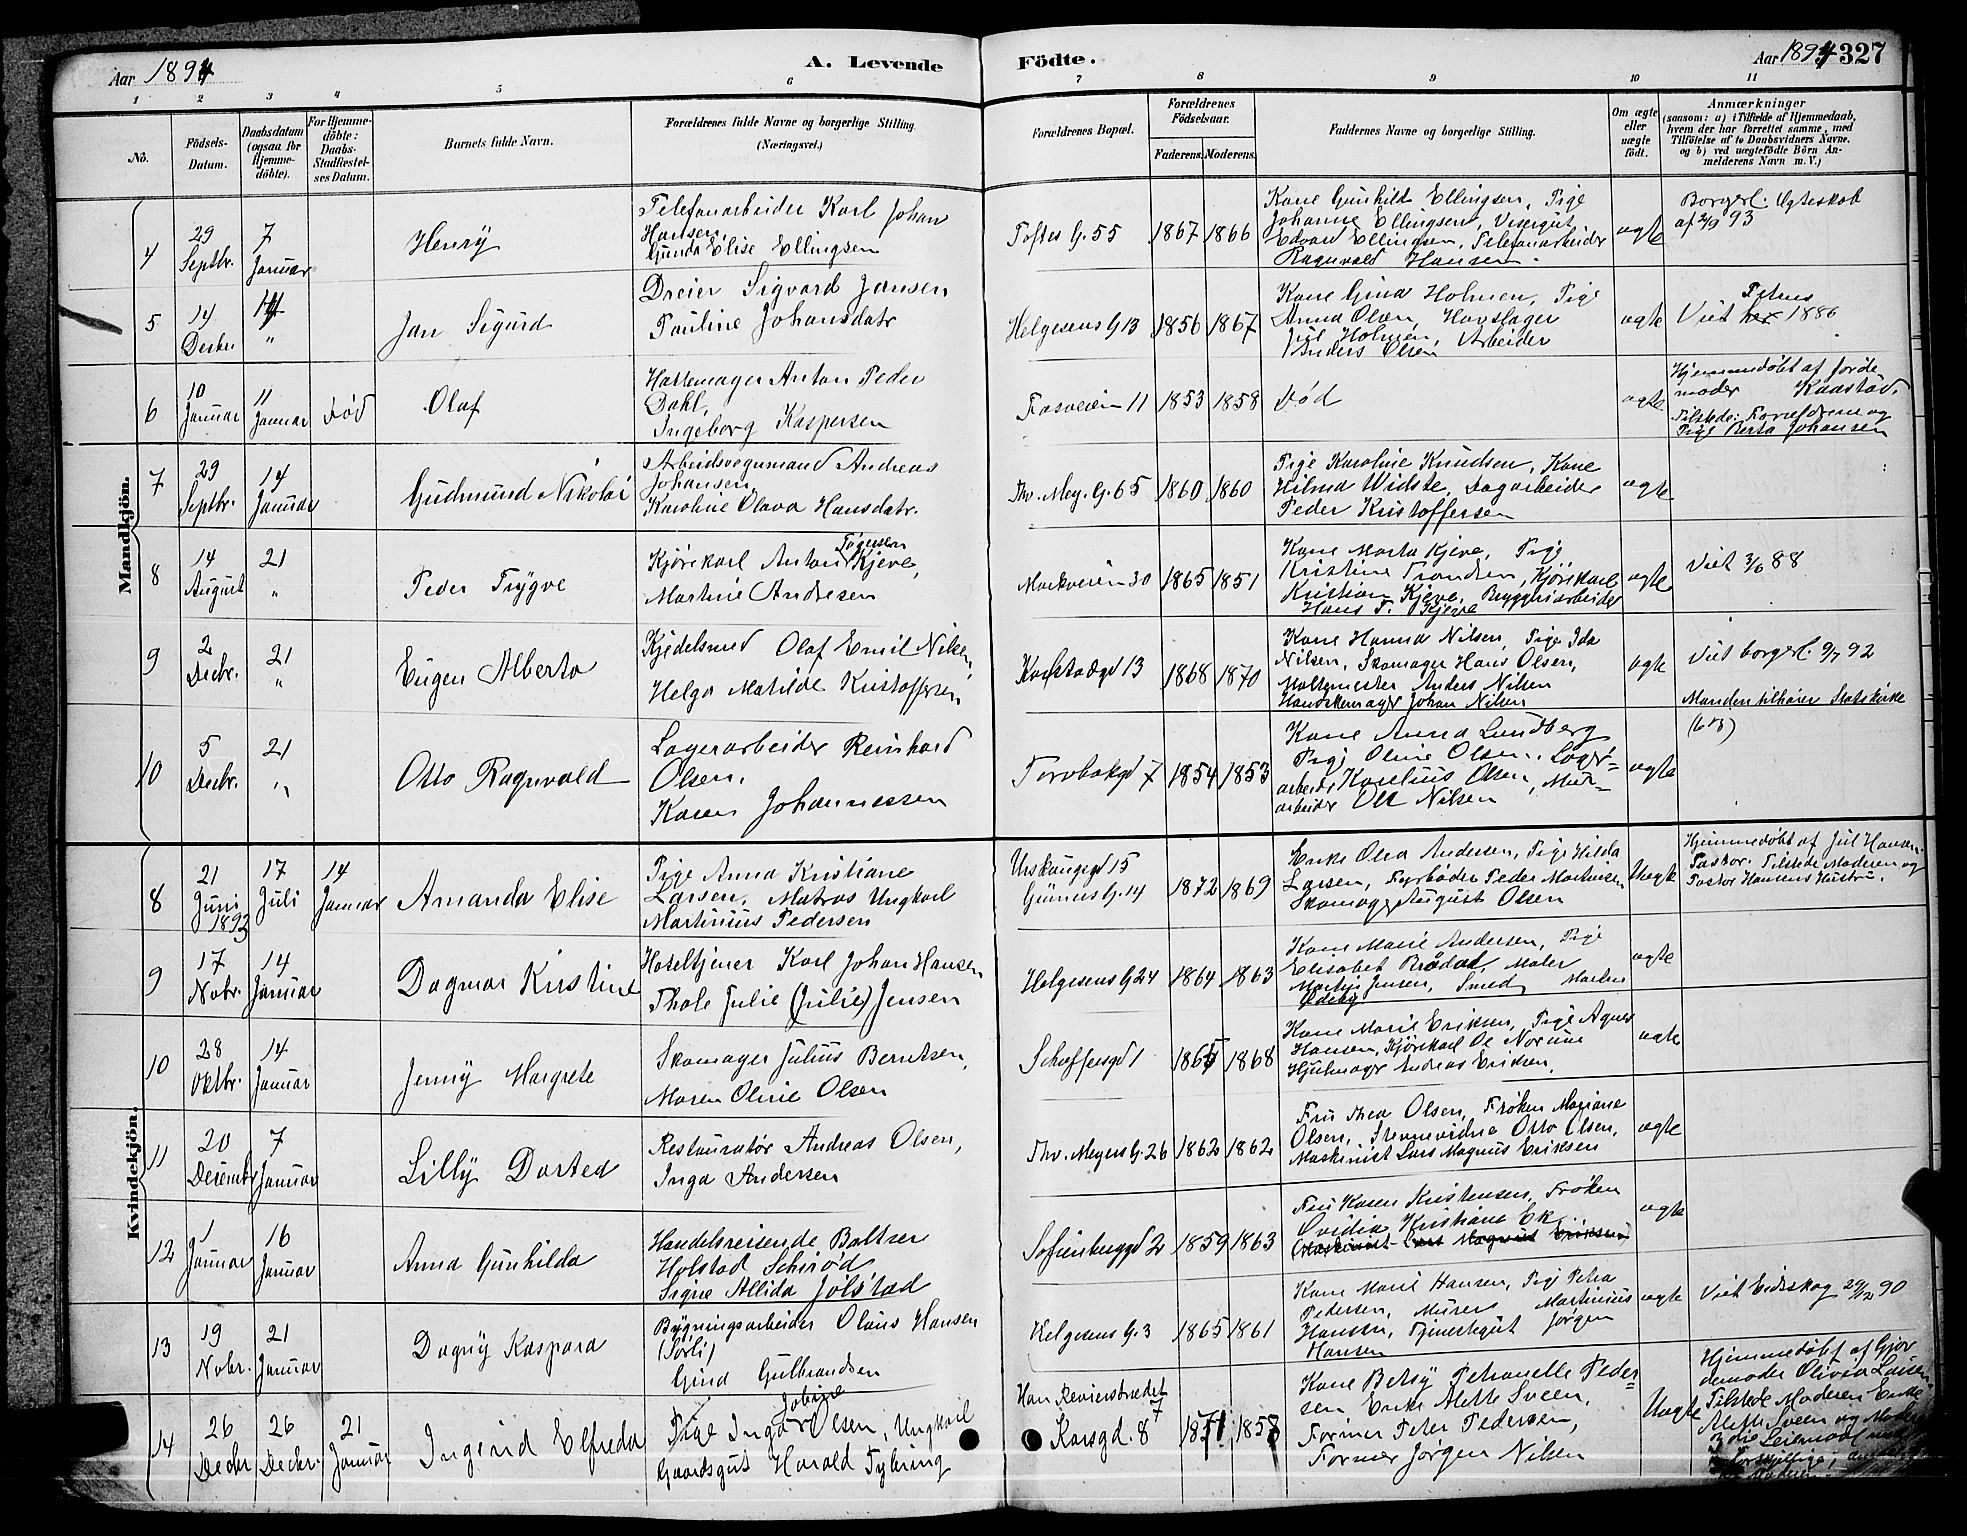 Aar 1894
A. Levende
Födte.
Aar 1894
327
1 2 3 4 5 6 7 8 9 10 11
No.
Födsels-
Datum.
Daabsdatum
(ogsaa for
Hjemme-
döbte).
For Hjemme-
döbte:
Daabs-
Stadfæstel-
ses Datum.
Barnets fulde Navn.
Forældrenes fulde Navne og borgerlige Stilling.
(Næringsvei.)
Forældrenes Bopæl.
Forældrenes
Födselsaar.
Faderens. Moderens.
Faddernes Navne og borgerlige Stilling.
Om ægte
eller
uægte
født.
Anmærkninger
(saasom: a) i Tilfælde af Hjemmedaab,
hvem der har forrettet samme, med
Tilföielse af to Daabsvidners Navne,
og b) ved uægtefödte Börn An-
melderens Navn m. V.)
Mandkjön.
4
29
Septbr.
7
Januar
Henry
Telefonarbeider Karl Johan
Hansen,
Gunda Elise Ellingsen
Toftes G. 55
1867
1866
Kone Gunhild Ellingsen, Pige
Johanne Ellingsen, Visergut
Edvard Ellingsen, Telefonarbeider
Ragnvald Hansen.
ægte
Borgerl. Ægteskab
af 93
5
14
Decbr.
14
"
Jan Sigurd
Dreier Sigvard Jansen
Pauline Johansdatr
Helgesens G 13
1856
1867
Kone Gina Holmen, Pige
Anna Olsen,
Juel Holmen, Arbeider
Anders Olsen
ægte
Petrus
Viet her 1886
6
10
Januar
11
Januar
Død
Olaf
Hattemager Anton Peder
Dahl,
Ingeborg Kaspersen
Fosveien 11
1853
1858
Død
ægte
Hjemmedøbt af Jorde-
moder Kaastad.
Tilstede: Forældrene og
Pige Berta Johansen
7
29
Septbr.
14
Januar
Gudmund Nikolai
Arbeidsvognmand Andreas
Johansen,
Karoline Olava Hansdatr.
Thv. Mey. G. 65
1860
1860
Pige Karoline Knudsen, Kone
Hilma Widste, Dagarbeider
Peder Kristoffersen
ægte
8
14
August
21
"
Peder Trygve
Kjørekarl Anton Kjeve,
Martine Andresen
Markveien 30
1865
1851
Kone Marta Kjeve, Pige
Kristine Trondsen, Kjørekarl
Kristian Kjeve, Bryggeriarbeider
Hans T. Kjeve
ægte
Viet 3/6 88
9
2
Decbr.
21
"
Eugen Alberto
Kjedelsmed Olaf Emil Nilsen,
Helga Matilde Kristoffersen
Karlstadgd 13
1868
1870
Kone Hanna Nilsen, Pige Ida
Nilsen, Skomager Hans Olsen,
Maltemester Anders Nilsen
Handskemager Johan Nilsen
ægte
Viet borgerl. 9/7 92
Manden tilhører Statskirke
10
5
Decbr.
21
"
Otto Ragnvald
Lagerarbeider Reinhard
Olsen,
Karen Johannessen
Torvbakgd 7
1854
1853
Kone Anna Lundberg
Pige Oline Olsen, Lager-
arbeider Karelius Olsen, Mur-
arbeider Ole Nilsen
ægte
Kvindekjön.
8
21
Juni
1893
17
Juli
14
Januar
Amanda Elise
Pige Anna Kristiane
Larsen, Matros Ungkarl
Martinius Pedersen
Urskougsgd 15
Grüners G. 14
1872
1869
Enke Olea Andersen, Pige Hilda
Larsen, Fyrbøder Peder Martinsen
Skomager August Olsen
Uægte
Hjemmedøbt af Jul Hansen
Pastor. Tilstede Moderen og
Pastor Hansens Hustru.
9
17
Novbr.
14
Januar
Dagmar Kristine
Hoteltjener Karl Johan Hansen
Thale Julie (Julie) Jensen
Helgesens G 24
1864
1863
Kone Marie Andersen, Pige
Elisabet Brødal, Maler
Martin Jensen, Smed
ægte
10
28
Oktbr.
14
Januar
Jenny Margrete
Skomager Julius Berntsen,
Maren Oline Olsen
Scheffersgd 1
1865
1868
Kone Marie Eriksen, Pige Agnes
Hansen, Kjørekarl Ole Norum
Hjulmager Andreas Eriksen,
ægte
11
20
Decembr
7
Januar
Lilly Dorted
Restauratør Andreas Olsen,
Inga Andersen
Thv. Meyers G. 26
1862
1862
Fru Thea Olsen, Frøken Mariane
Olsen, Stevnevidne Otto Olsen,
Maskinist Lars Magnus Eriksen
ægte
12
1
Januar
16
Januar
Anna Gunhilda
Handelsreisende Baltzer
Holstad Schiröd
Signe Allida Jölstad
Sofienberggd 2
1859
1863
Fru Karen Kristensen, Frøken
Ovidia Kristiane Ek
Maskinist Lars Magnus Eriksen
ægte
13
19
Novbr.
21
Januar
Dagny Kaspara
Bygningsarbeider Olaus Hansen
(Sørli)
Gina Gulbrandsen
Helgesens G. 3
1865
1861
Kone Marie Hansen, Pige Petra
Pedersen, Murer Martinius
Hansen, Tjenestegut Jørgen
Hansen
ægte
Viet Eidsskog 29/12 90
14
26
Decbr
26
Decbr.
21
Januar
Ingerid Elfreda
Pige Inga Olsen, Ungkarl
Gaardsgut Harald Fyhring
Han Revierstrædet
7
Korsgd. 8
1871
1857
Kone Betsy Petronelle Peder-
sen Enke Alette Sveen,
Former Peter Pedersen,
Former Jørgen Nilsen
Uægte
Hjemmedøbt af Gjor-
demoder Olivia Larsen
Tilstede Moderen Enke
Alette Sveen